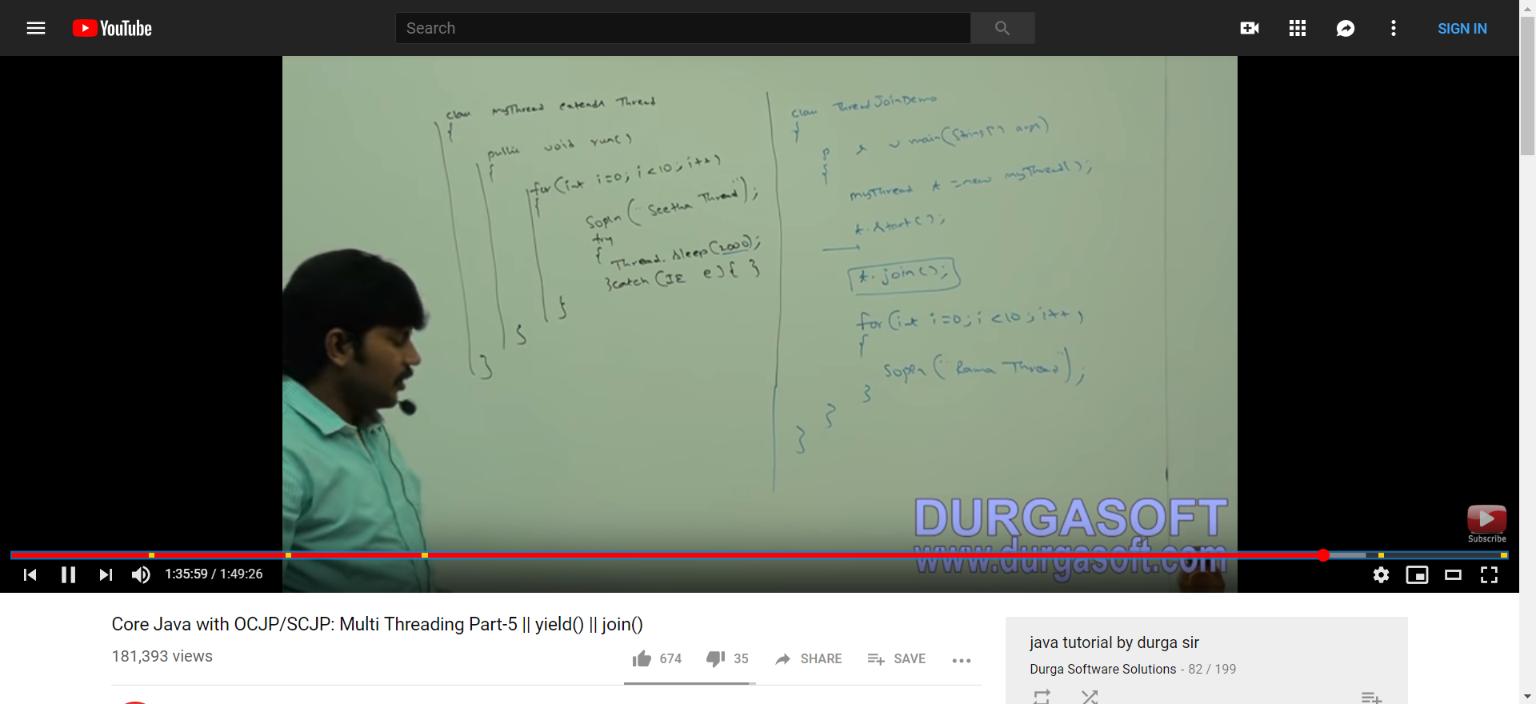 YouTube
Search
SIGN IN
class myThread extends Thread
{
public void run()
{
for(int i=0; i<10; i++)
{
Sopln("Seetha Thread");
try
{
Thread.sleep(2000);
}catch(IE e){ }
}
}
}
class ThreadJoinDemo
{
p s v main(String[] args)
{
myThread t = new myThread();
t.start();
t.join();
for(int i=0; i<10; i++)
{
Sopln("Rama Thread");
}
}
}
DURGASOFT
www.durgasoft.com
Subscribe
1:35:59 / 1:49:26
Core Java with OCJP/SCJP: Multi Threading Part-5 || yield() || join()
181,393 views
674
35
SHARE
SAVE
java tutorial by durga sir
Durga Software Solutions - 82 / 199